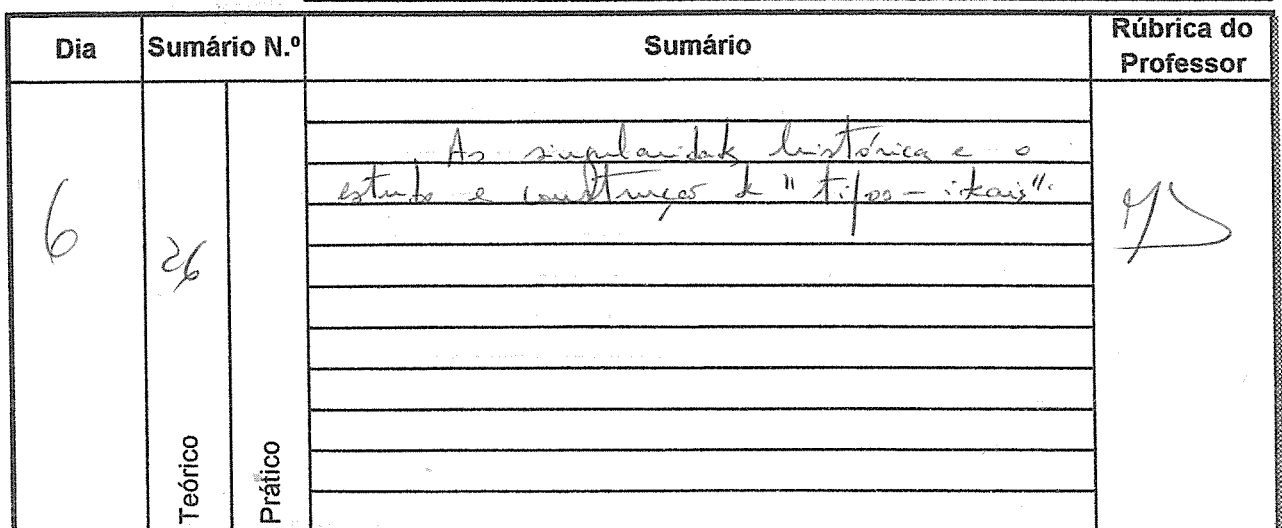 Dia Sumário N.º Sumário Rúbrica do Professor
As singularidades históricas e o
estudo e construção de "tipos-ideais".
6 26
Teórico Prático